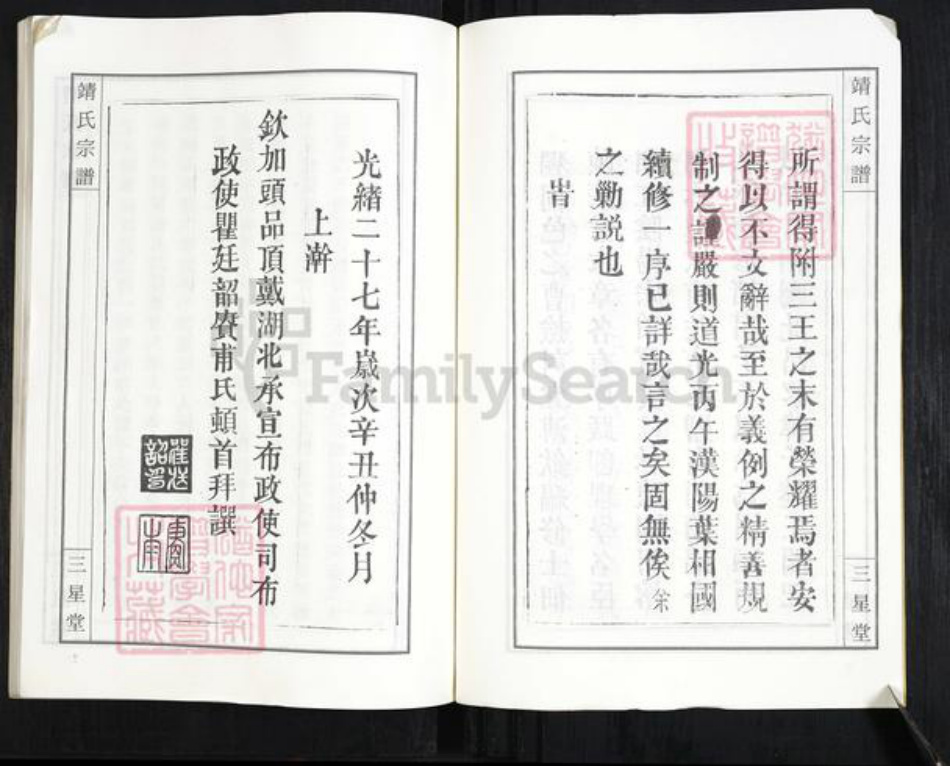 靖氏宗譜
所謂得附三王之末有榮耀焉者安
得以不文辭哉至於義例之精善規
制之謹嚴則道光丙午漢陽葉相國
續修一序已詳哉言之矣固無俟余
之勦説也
旹
三星堂
光緒二十七年歲次辛丑仲冬月
上澣
欽加頭品頂戴湖北承宣布政使司布
政使瞿廷韶賡甫氏頓首拜譔
瞿廷韶印
賡甫
靖氏宗譜
三星堂
FamilySearch